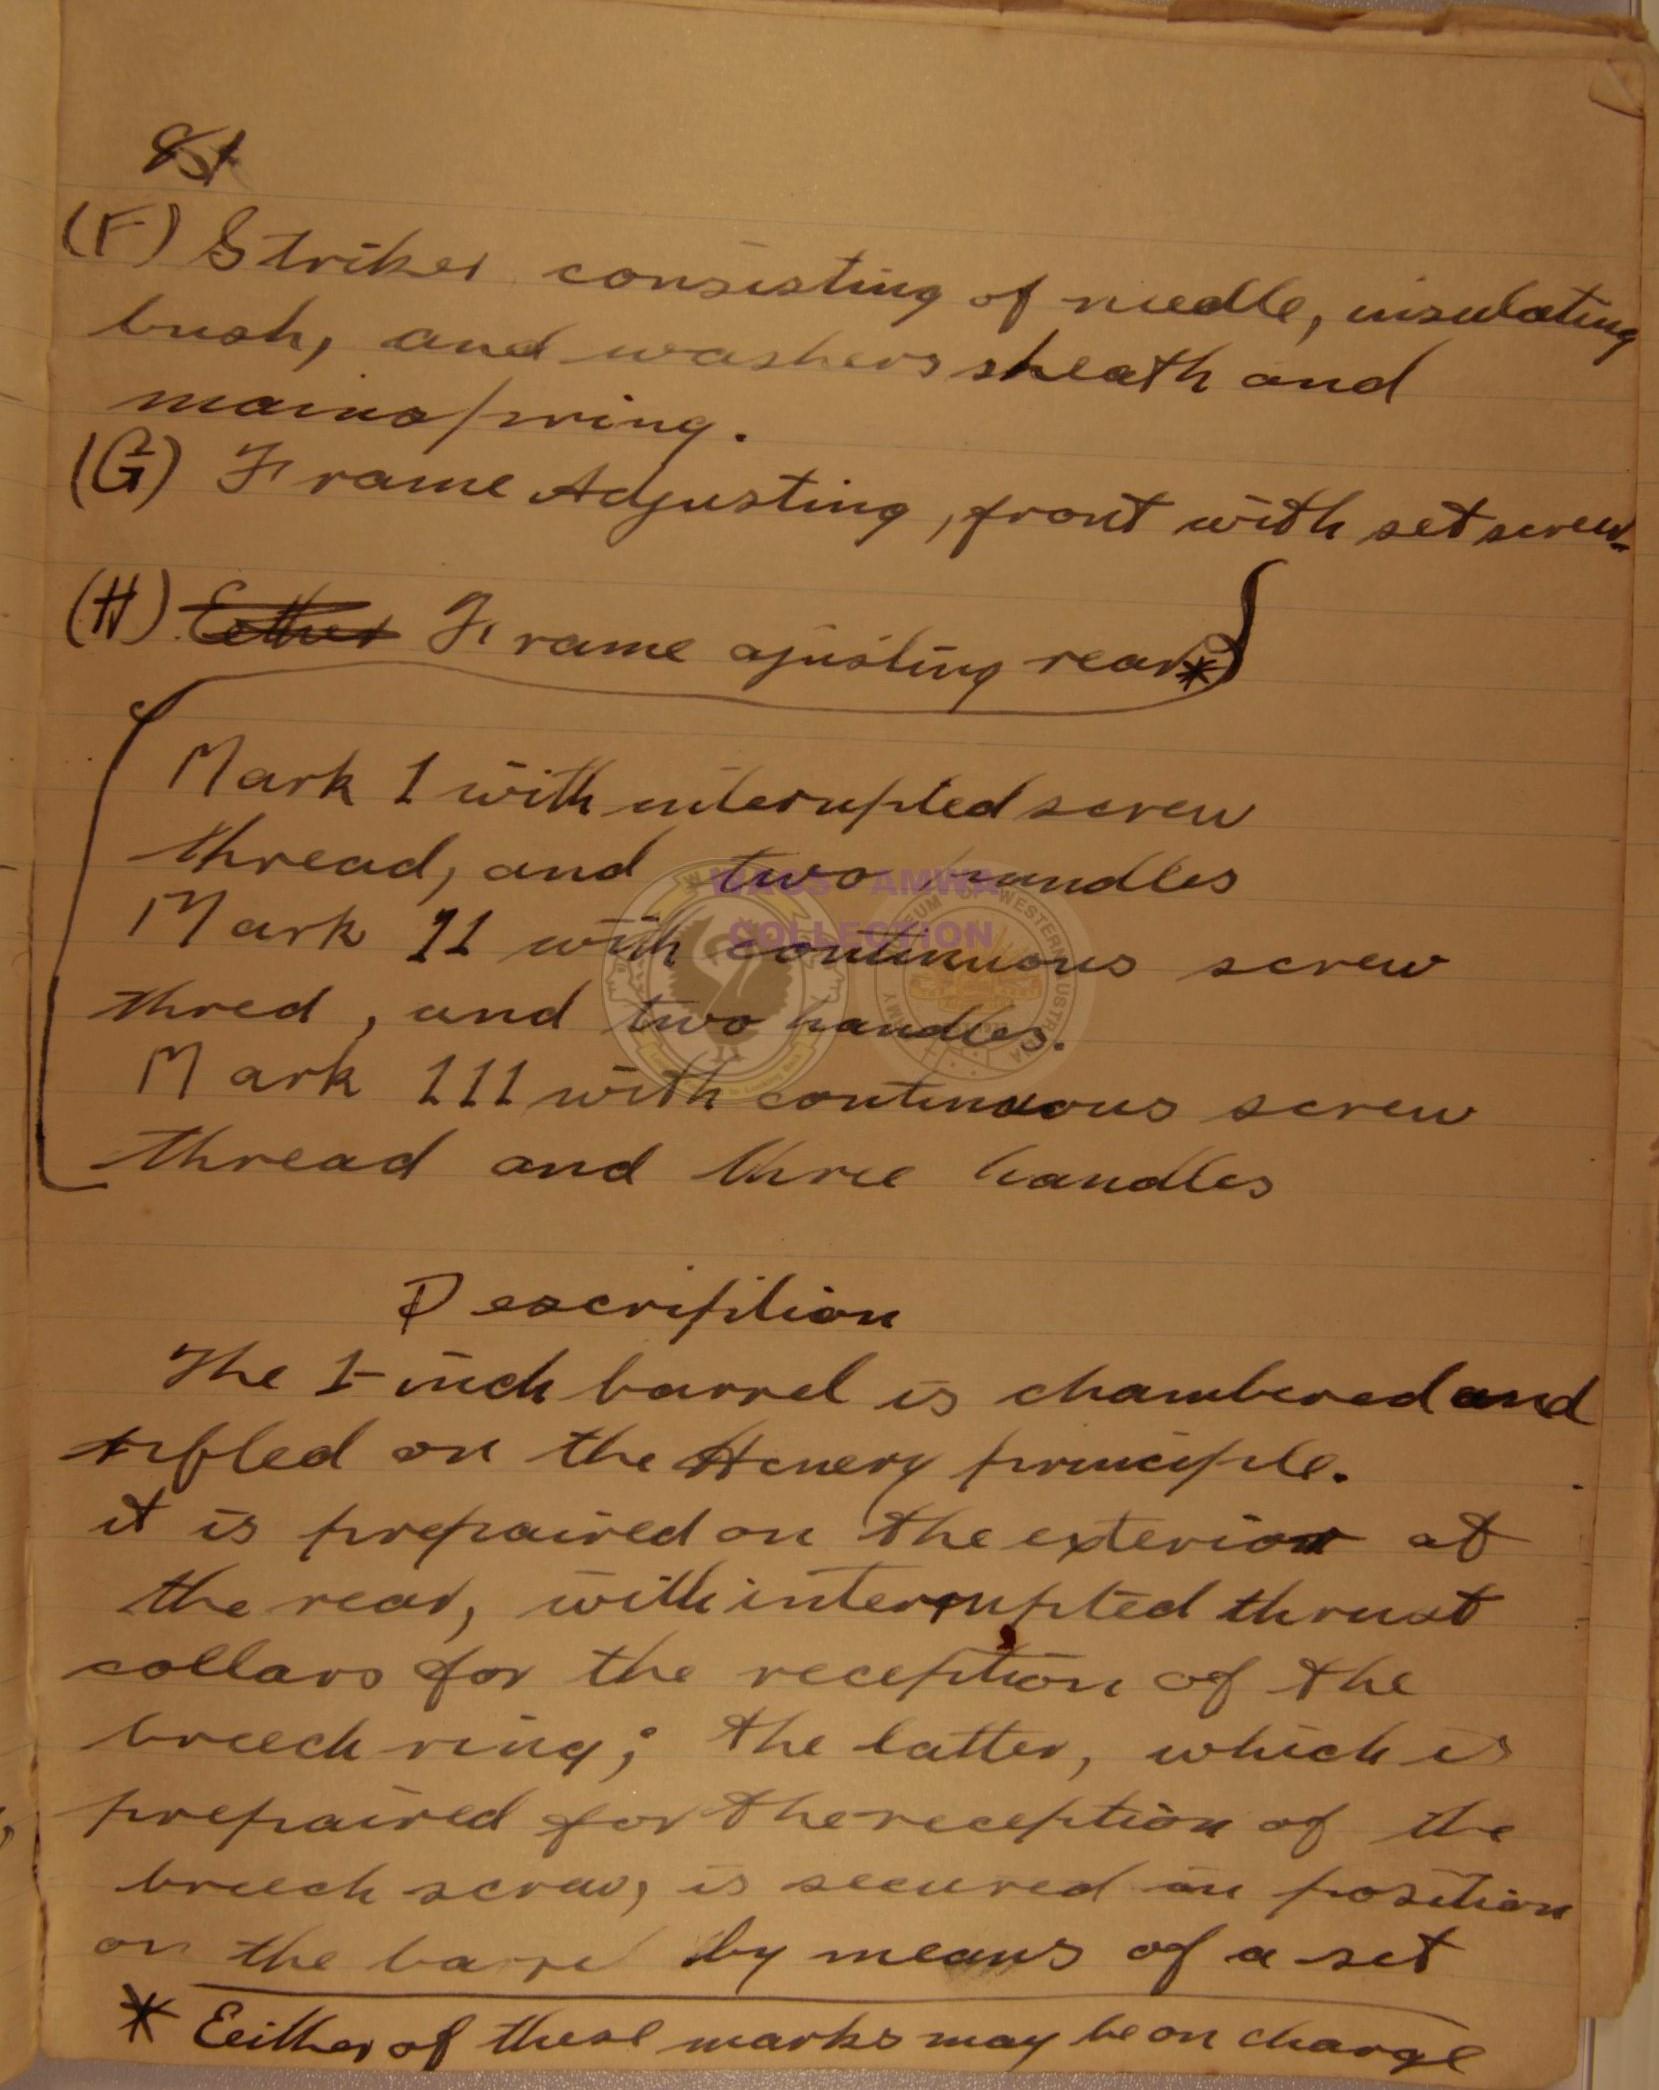 (F) Striker consisting of needle, insulating
bush, and washers sheath and
mainspring.
(G) Frame Adjusting, front with set screw.
(H) Eether Frame ajusting rear *
Mark 1 with interupted screw
thread, and two handles
Mark 11 with continuous screw
thred, and two handles.
Mark 111 with continuous screw
thread and three handles
WAGS AMWA
COLLECTION
Description
The 1-inch barrel is chambered and
rifled on the Henery principle.
it is prepaired on the exterior at
the rear, with interrupted thrust
collars for the reception of the
breech ring; the latter, which is
prepaired for the reception of the
breech screw, is secured in position
on the barrel by means of a set
* Eeither of these marks may be on charge